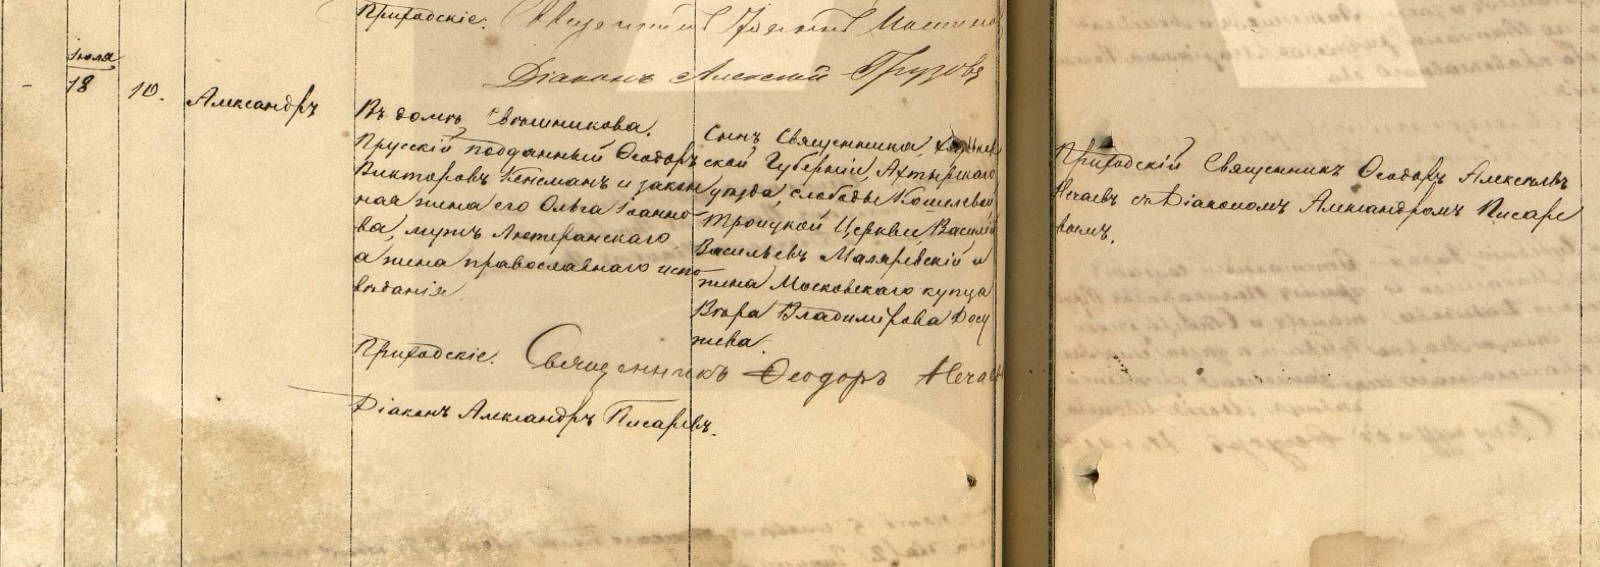 Приходскіе: Священникъ Іоаннъ
Діаконъ Алексій Грузовъ
Іюля
18 10. Александръ
Въ домѣ Свѣшникова.
Прусскій подданный Ѳеодоръ
Викторовъ Кенеманъ и закон
ная жена его Ольга Іоанно
ва, мужъ Лютеранскаго,
а жена православнаго испо
вѣданія.
Сынъ Священника,
ской Губерніи, Ахтырскаго
уѣзда, слободы
Троицкой Церкви, Василій
Васильевъ Маляревскій и
жена Московскаго купца
Владимірова Досу
жева.
Приходскіе: Священникъ Ѳеодоръ Нечаевъ
Діаконъ Александръ Писаревъ.
Приходскій Священникъ Ѳеодоръ Алексѣевъ
Нечаевъ съ Діакономъ Александромъ Писаре
вымъ.